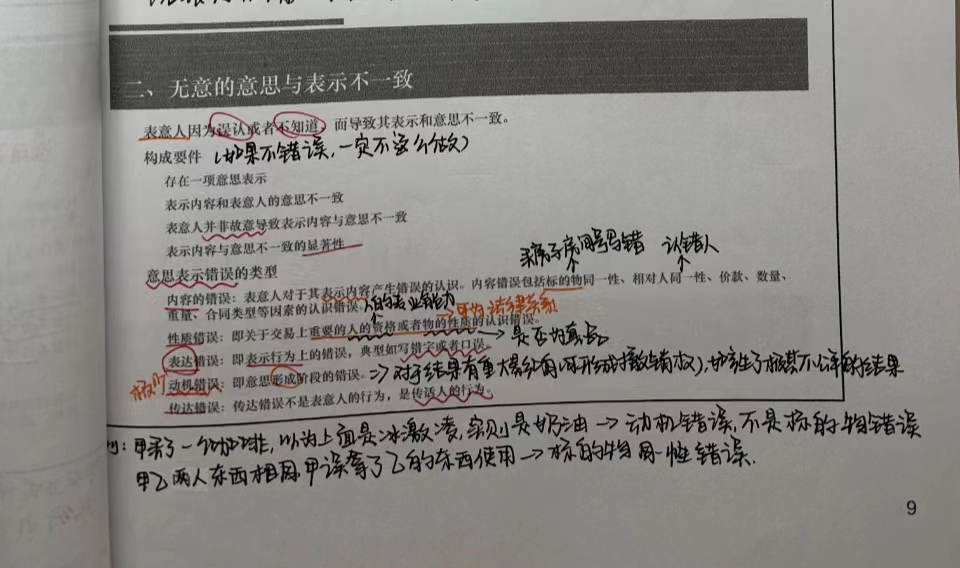 二、无意的意思与表示不一致
表意人因为误认或者不知道,而导致其表示和意思不一致。
构成要件(如果不错误,一定不这么做)
存在一项意思表示
表示内容和表意人的意思不一致
表意人并非故意导致表示内容与意思不一致
表示内容与意思不一致的显著性
买房子房间号写错 认错人
意思表示错误的类型
内容的错误:表意人对于其表示内容产生错误的认识。内容错误包括标的物同一性、相对人同一性、价款、数量、
重量、合同类型等因素的认识错误。
人的专业能力
性质错误:即关于交易上重要的人的资格或者物的性质的认识错误。
是否为真品
表达错误:即表示行为上的错误,典型如写错字或者口误。
动机错误:即意思形成阶段的错误。
传达错误:传达错误不是表意人的行为,是传话人的行为。
甲买了一个,以为上面是冰激凌,实则是奶油→动机错误,不是标的物错误
甲乙两人东西相同,甲误拿了乙的东西使用→标的物同一性错误.
9